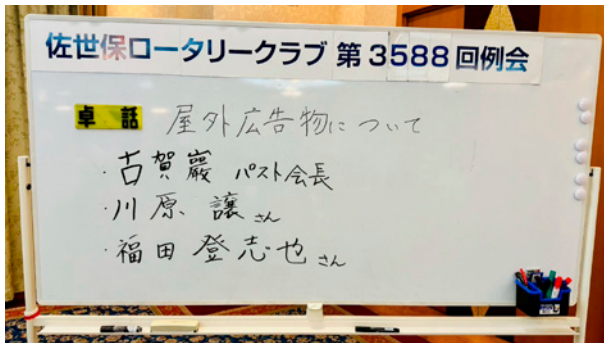 佐世保ロータリークラブ 第3588回例会
卓話 屋外広告物について
・古賀巖 パスト会長
・川原 譲さん
・福田 登志也さん